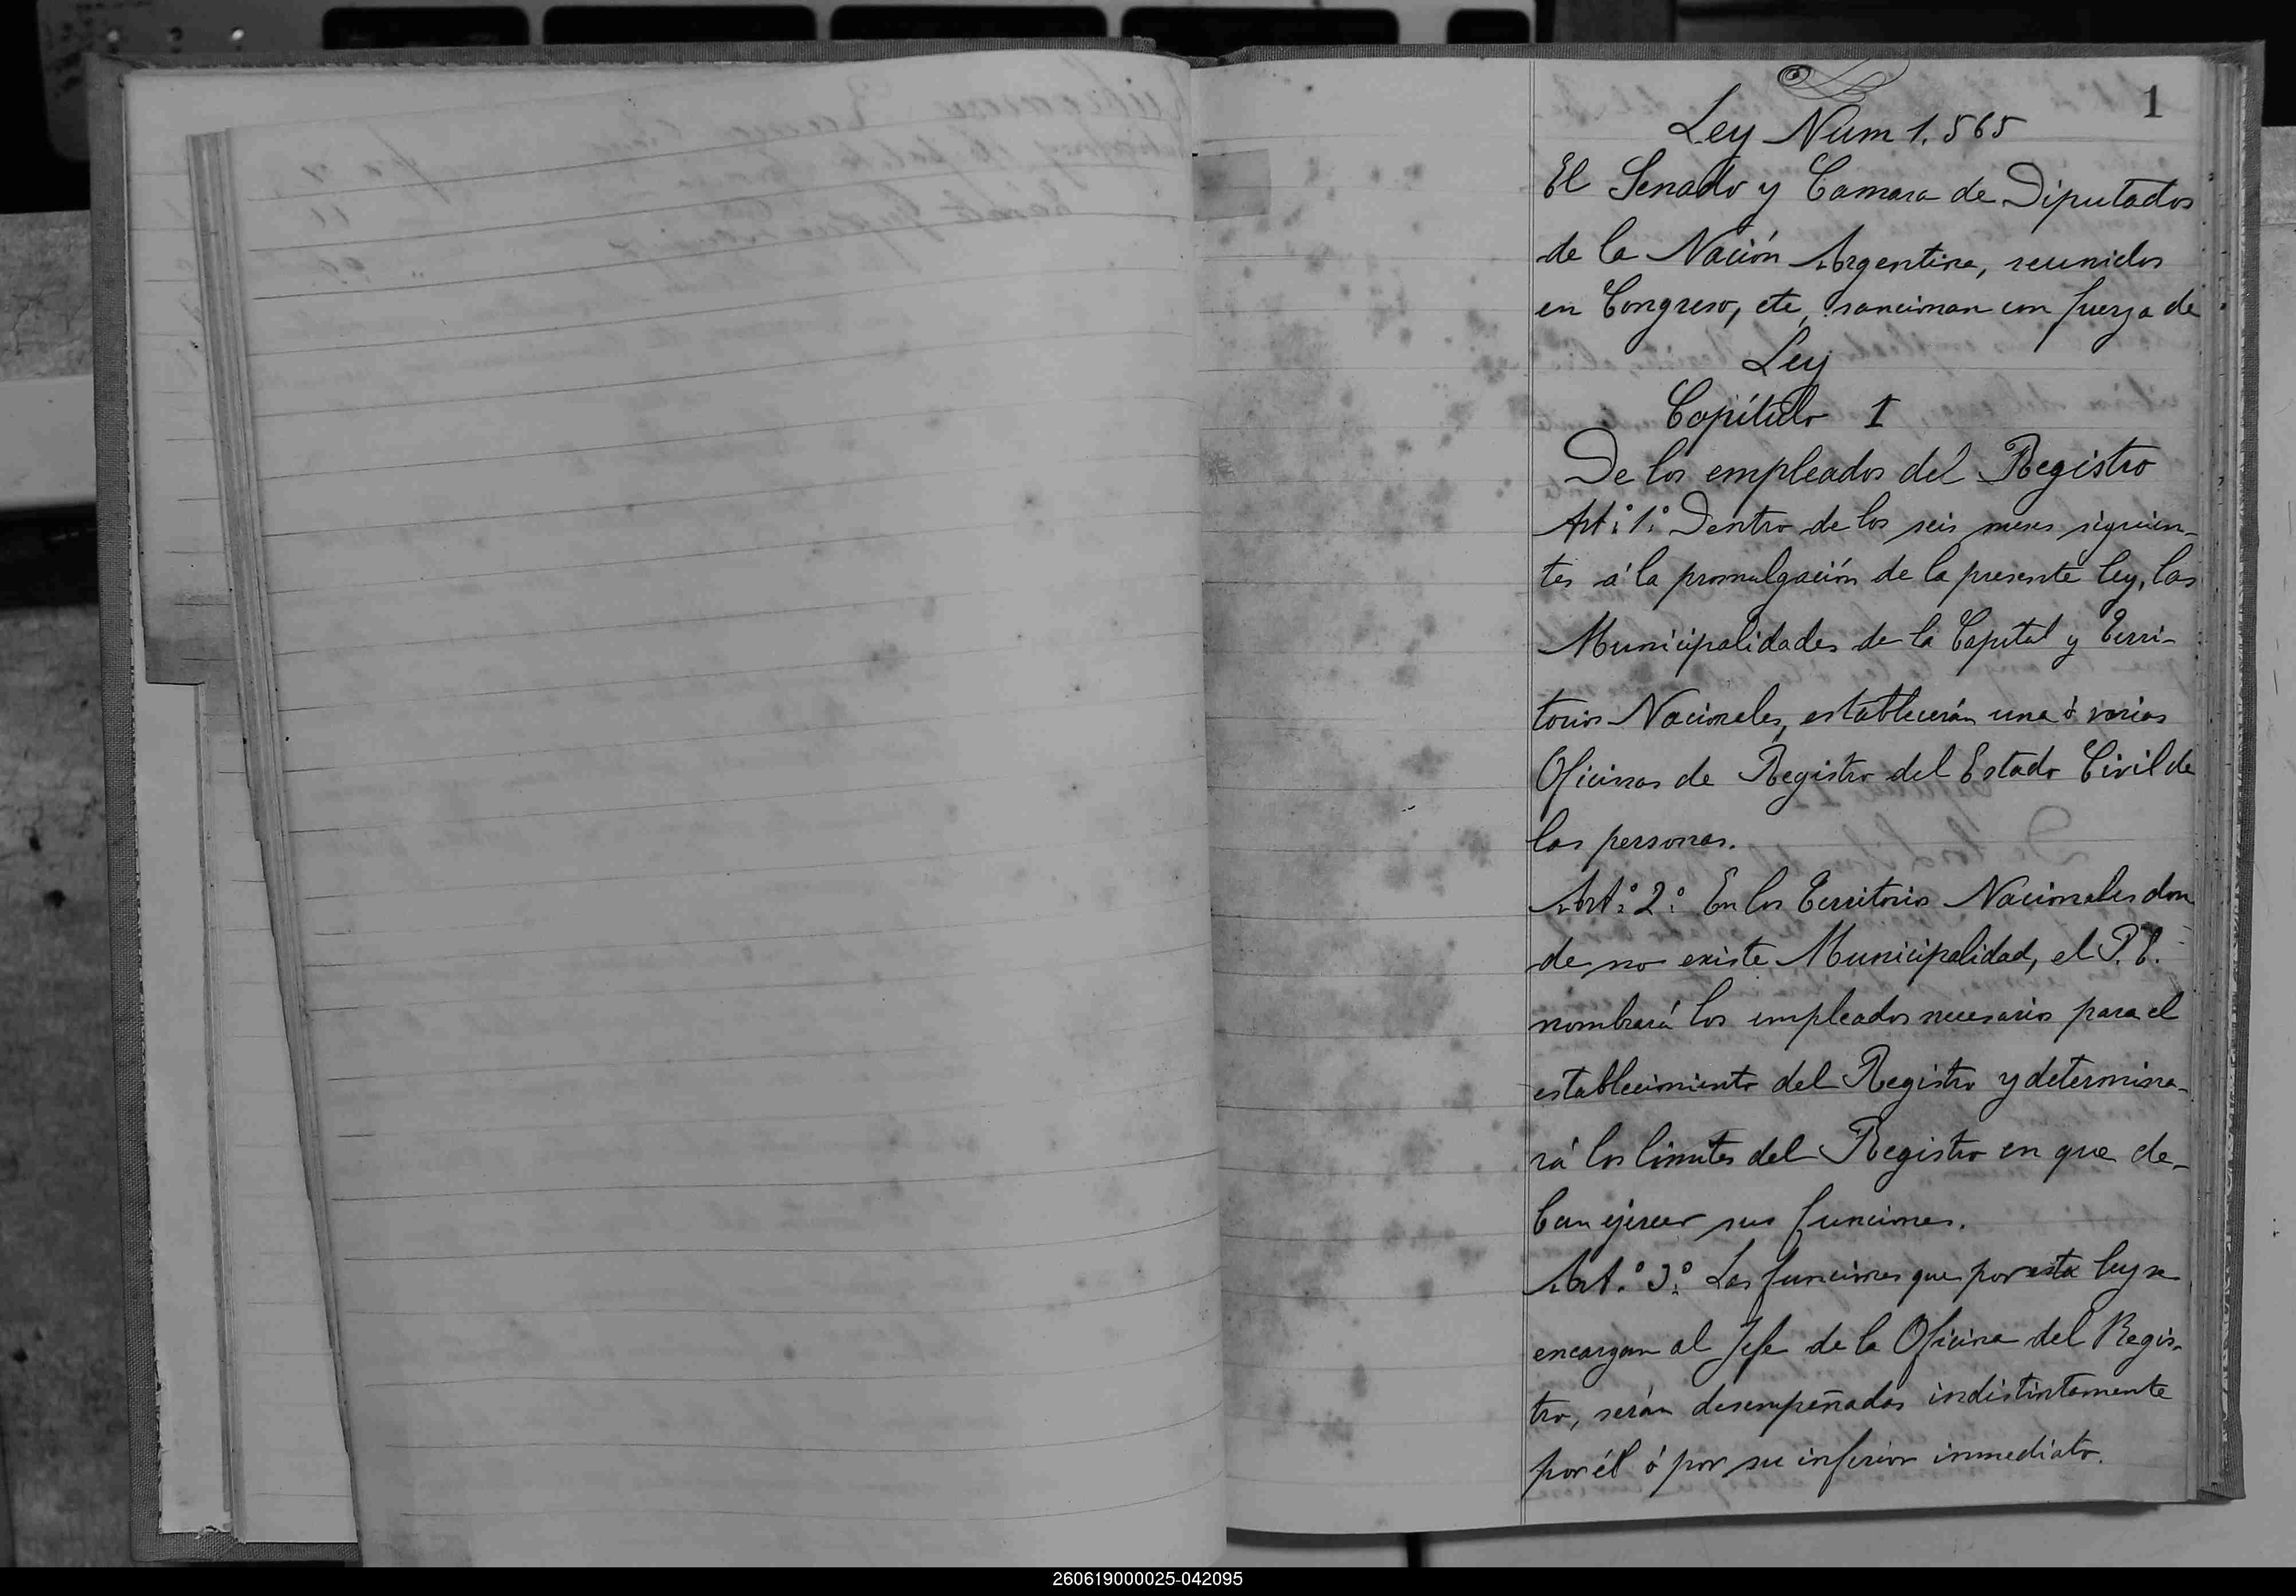 1
Ley Num 1.565
El Senado y Camara de Diputados
de la Nación Argentina, reunidos
en Congreso, etc, sancionan con fuerza de
Ley
Capítulo 1
De los empleados del Registro
Art.º 1.º Dentro de los seis meses siguien-
tes á la promulgación de la presente ley, las
Municipalidades de la Capital y Terri-
torios Nacionales, establecerán una ó varias
Oficinas de Registro del Estado Civil de
las personas.
Art.º 2.º En los Territorios Nacionales don
de no existe Municipalidad, el P. E.
nombrará los empleados necesarios para el
establecimiento del Registro y determina-
rá los límites del Registro en que de-
ban ejercer sus funciones.
Art.º 3.º Las funciones que por esta ley se
encargan al Jefe de la Oficina del Regis-
tro, serán desempeñadas indistintamente
por él ó por su inferior inmediato.
260619000025-042095